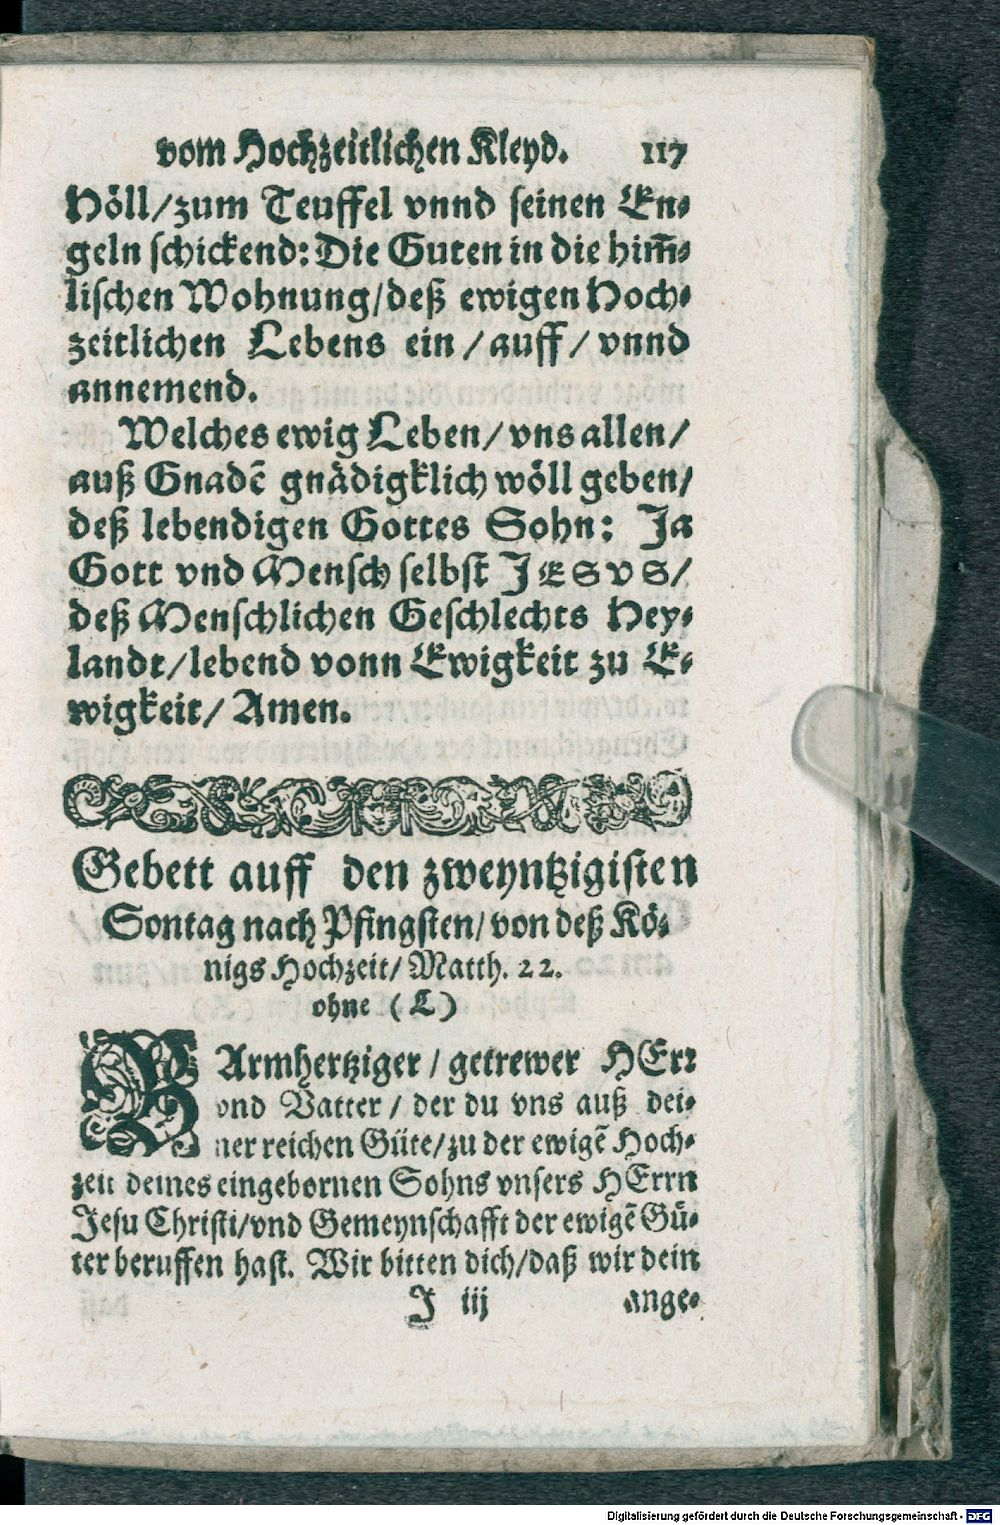 vom Hochzeitlichen Kleyd. 117
Höll/zum Teuffel vnnd seinen En-
geln schickend: Die Guten in die him̄-
lischen Wohnung/deß ewigen Hoch-
zeitlichen Lebens ein/auff/vnnd
annemend.
Welches ewig Leben/vns allen/
auß Gnadē gnådigklich wöll geben/
deß lebendigen Gottes Sohn: Ja
Gott vnd Mensch selbst JESVS/
deß Menschlichen Geschlechts Hey-
landt/lebend vonn Ewigkeit zu E-
wigkeit/Amen.
Gebett auff den zweyntzigisten
Sontag nach Pfingsten/von deß Kö-
nigs Hochzeit/Matth. 22.
ohne (L)
BArmhertziger/getrewer HErr
vnd Vatter/der du vns auß dei-
ner reichen Güte/zu der ewigē Hoch-
zeit deines eingebornen Sohns vnsers HErrn
Jesu Christi/vnd Gemeynschafft der ewigē Gü-
ter beruffen hast. Wir bitten dich/daß wir dein
J iij ange-
Digitalisierung gefördert durch die Deutsche Forschungsgemeinschaft - DFG